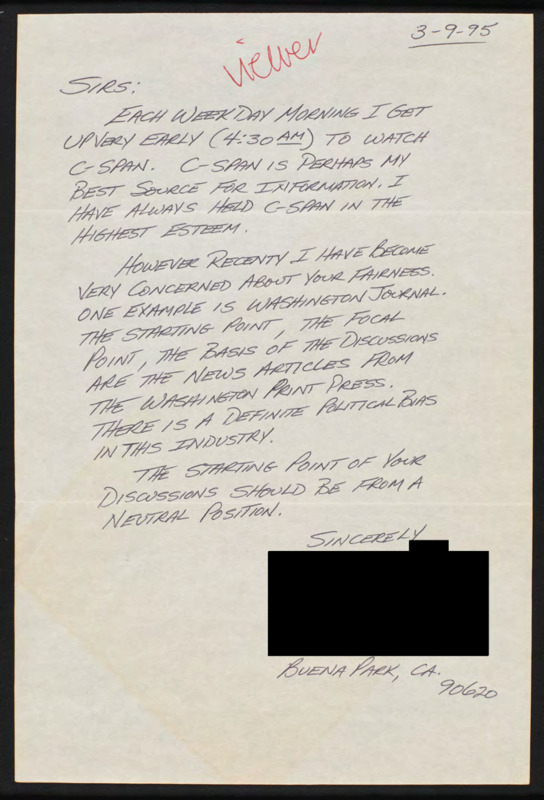 3-9-95
viewer
SIRS:
EACH WEEKDAY MORNING I GET
UP VERY EARLY (4:30 AM) TO WATCH
C-SPAN. C-SPAN IS PERHAPS MY
BEST SOURCE FOR INFORMATION. I
HAVE ALWAYS HELD C-SPAN IN THE
HIGHEST ESTEEM.
HOWEVER RECENTY I HAVE BECOME
VERY CONCERNED ABOUT YOUR FAIRNESS.
ONE EXAMPLE IS WASHINGTON JOURNAL.
THE STARTING POINT, THE FOCAL
POINT, THE BASIS OF THE DISCUSSIONS
ARE THE NEWS ARTICLES FROM
THE WASHINGTON PRINT PRESS.
THERE IS A DEFINITE POLITICAL BIAS
IN THIS INDUSTRY.
THE STARTING POINT OF YOUR
DISCUSSIONS SHOULD BE FROM A
NEUTRAL POSITION.
SINCERELY
BUENA PARK, CA.
90620